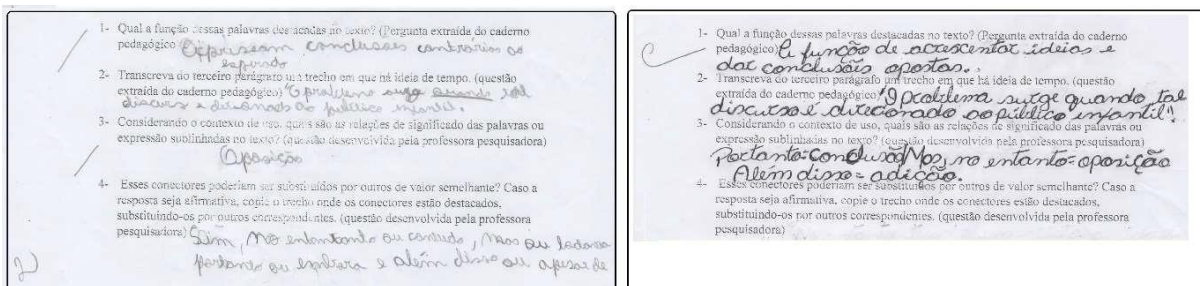 1- Qual a função dessas palavras destacadas no texto? (Pergunta extraída do caderno
pedagógico) Expressam conclusões contrárias ao
esperado
2- Transcreva do terceiro parágrafo um trecho em que há ideia de tempo. (questão
extraída do caderno pedagógico) O problema surge quando tal
discurso e direcionado ao público infantil.
3- Considerando o contexto de uso, quais são as relações de significado das palavras ou
expressão sublinhadas no texto? (questão desenvolvida pela professora pesquisadora)
Oposição
4- Esses conectores poderiam ser substituídos por outros de valor semelhante? Caso a
resposta seja afirmativa, copie o trecho onde os conectores estão destacados,
substituindo-os por outros correspondentes. (questão desenvolvida pela professora
pesquisadora) Sim, no entantanto ou contudo, mas ou todavia
portanto ou embora e além disso ou apesar de
1- Qual a função dessas palavras destacadas no texto? (Pergunta extraída do caderno
pedagógico) A função de acrescentar ideias e
dar conclusões opostas.
2- Transcreva do terceiro parágrafo um trecho em que há ideia de tempo. (questão
extraída do caderno pedagógico) "O problema surge quando tal
discurso é direcionado ao público infantil".
3- Considerando o contexto de uso, quais são as relações de significado das palavras ou
expressão sublinhadas no texto? (questão desenvolvida pela professora pesquisadora)
Portanto=conclusão/Mas, no entanto=oposição
Além disso=adição.
4- Esses conectores poderiam ser substituídos por outros de valor semelhante? Caso a
resposta seja afirmativa, copie o trecho onde os conectores estão destacados,
substituindo-os por outros correspondentes. (questão desenvolvida pela professora
pesquisadora)